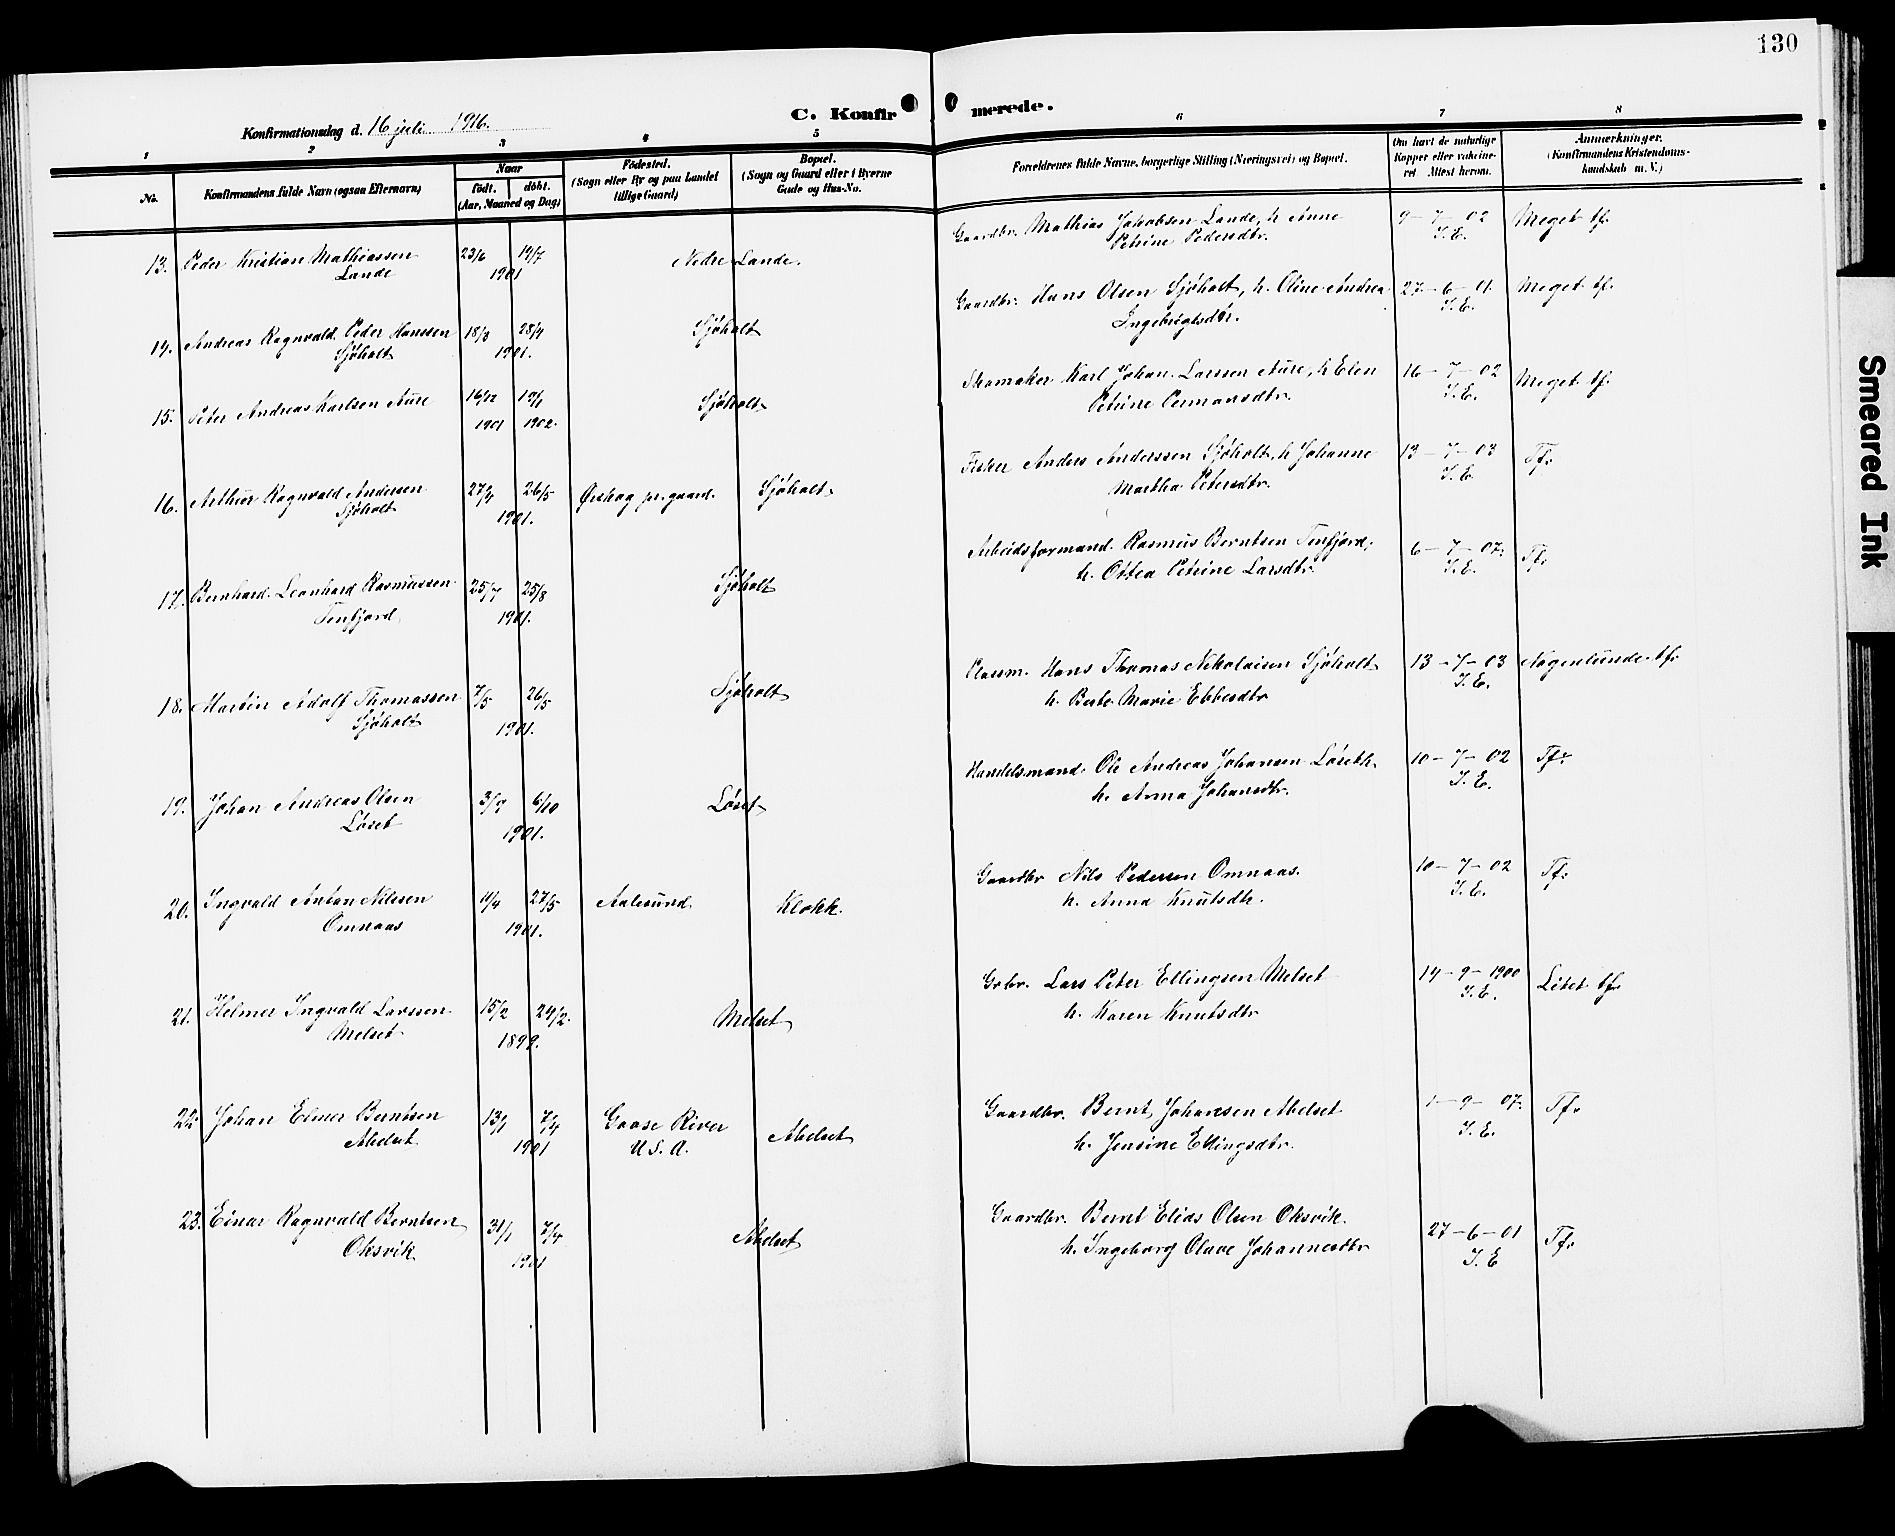 130
Konfirmationsdag d. 16 juli 1916.
C. Konfirmerede.
1 2 3 4 5 6 7 8
No.
Konfirmandens fulde Navn (ogsaa Efternavn)
Naar
födt. döbt.
(Aar, Maaned og Dag)
Födested.
(Sogn eller By og paa Landet
tillige Gaard)
Bopæl.
(Sogn og Gaard eller i Byerne
Gade og Hus-No.
Forældrenes fulde Navne, borgerlige Stilling (Næringsvei) og Bopæl.
Om havt de naturlige
Kopper eller vaccine-
ret Attest herom.
Anmærkninger.
(Konfirmandens Kristendoms-
kundskab m. V.)
13. Peder Kristian Mathiassen 23/6 14/7 Nedre Lande.
Lande 1901
Gaardbr. Mathias Jakobsen Lande, h. Anne 9 - 7 - 02 Meget tf.
Petrine Pedersdtr. I.E.
14. Andreas Ragnvald Peder Hanssen 18/3 28/4 Sjøholt
Sjøholt 1901.
Gaardbr. Hans Olsen Sjøholt, h. Oline Andrea 27 - 6 - 01 Meget tf.
Ingebrigtsdtr. I.E.
15. Peter Andreas Karlsen Aure 16/12 19/1 Sjøholt
1901 1902.
Skomaker Karl Johan Larssen Aure, h Elen 16 - 7 - 02 Meget tf.
Petrine Permansdtr. I.E.
16. Arthur Ragnvald Andersen 27/4 26/5 Ørskog pr.gaard. Sjøholt
Sjøholt 1901.
Fisker Anders Anderssen Sjøholt, h Johanne 13 - 7 - 03 Tf.
Martha Petersdtr. I.E.
17. Bernhard Leonhard Rasmussen 25/7 25/8 Sjøholt
Tenfjord 1901.
Arbeidsformand Rasmus Berntsen Tenfjord, 6 - 7 - 07. Tf.
h. Ottea Petrine Larsdtr. I.E.
18. Martin Adolf Thomassen 7/5 26/5 Sjøholt
Sjøholt 1901.
Plassm. Hans Thomas Nikolaisen Sjøholt 13 - 7 - 03 Nogenlunde tf.
h. Berte Marie Ebbesdtr I.E.
19. Johan Andreas Olsen 3/9 6/10 Løset
Løset 1901.
Handelsmand Ole Andreas Johansen Løseth. 10 - 7 - 02 Tf.
h. Anna Johansdtr. I.E.
20. Ingvald Anton Nilssen 11/4 27/5 Aalesund. Klokk.
Omnaas 1901.
Gaardbr Nils Pedersen Omnaas. 10 - 7 - 02 Tf.
h. Anna Knutsdtr. I.E.
21. Helmer Ingvald Larssen 15/2 24/2. Melset
Melset 1899.
Grbr. Lars Peter Ellingsen Melset 14 - 9 - 1900 Litet tf.
h. Karen Knutsdtr I.E.
22. Johan Elmer Berntsen 13/1 7/4 Goose River Abelset
Abelset 1901 U.S.A.
Gaardbr. Bernt Johansen Abelset 1 - 9 - 07. Tf.
h. Jensine Ellingsdtr. I.E.
23. Einar Ragnvald Berntsen 31/1 7/4 Abelset
Oksvik 1901
Gaardbr. Bernt Elias Olsen Oksvik. 27 - 6 - 01 Tf.
h. Ingeborg Olave Johannesdtr I.E
Smeared Ink